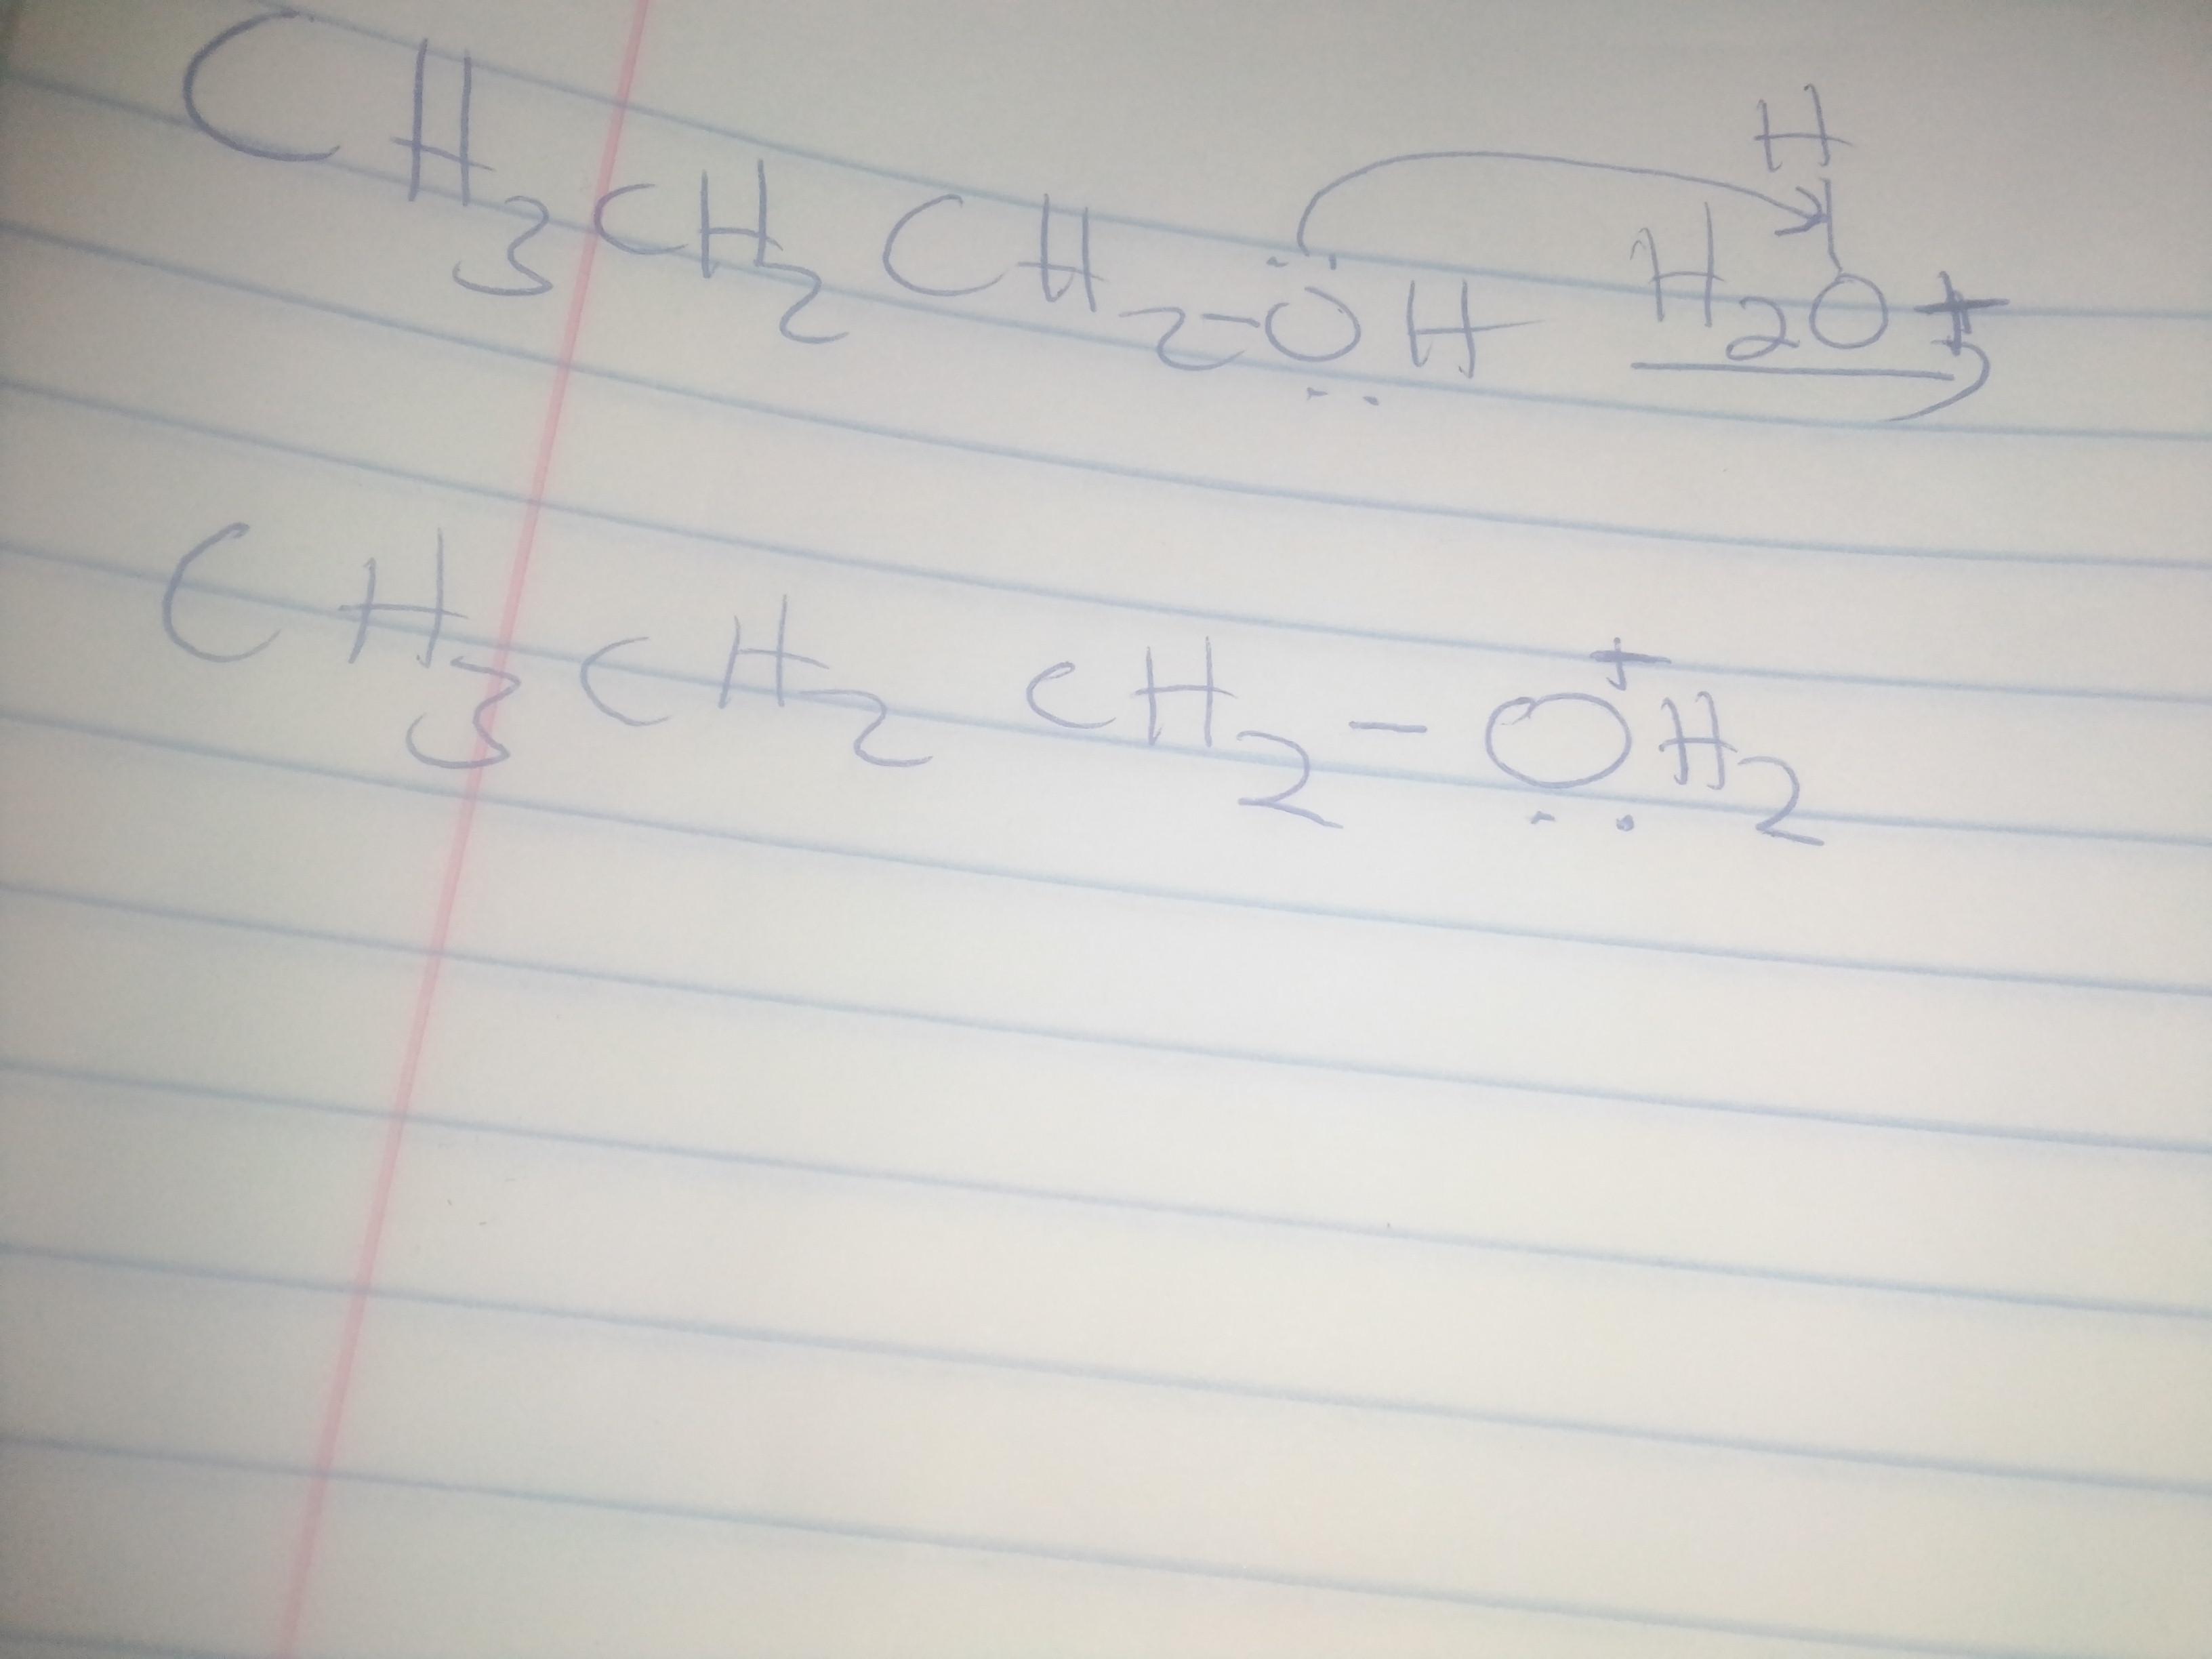 H
CH3CH2CH2-ÖH H2O+
CH3CH2 CH2-OH2
+